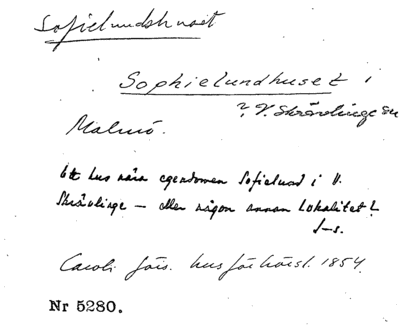 Sofielundshuset
Sophielundhuset i
? V. Skrävlinge sn
Malmö.
Ett hus nära egendomen Sofielund i V.
Skrävlinge — eller någon annan lokalitet?
J-s.
Caroli förs. husförhörsl. 1854.
Nr 5280.